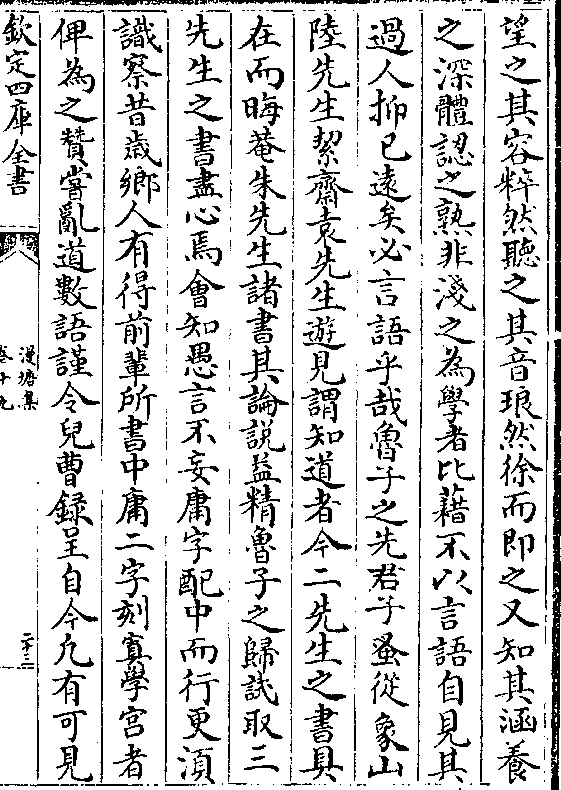 望之其容粹然聽之其音琅然徐而即之又知其涵養
之深體認之熟非淺之為學者比藉不以言語自見其
過人抑已遠矣必言語乎哉魯子之先君子蚤從象山
陸先生絜齋袁先生遊見謂知道者今二先生之書具
在而晦菴朱先生諸書其論說益精魯子之歸試取三
先生之書盡心焉會知愚言不妄庸字配中而行更湏
識察昔歲鄉人有得前輩所書中庸二字刻寘學宮者
俾為之贊嘗亂道數語謹令兒曹録呈自今凡有可見
欽定四庫全書
漫塘集
卷十九
二十三